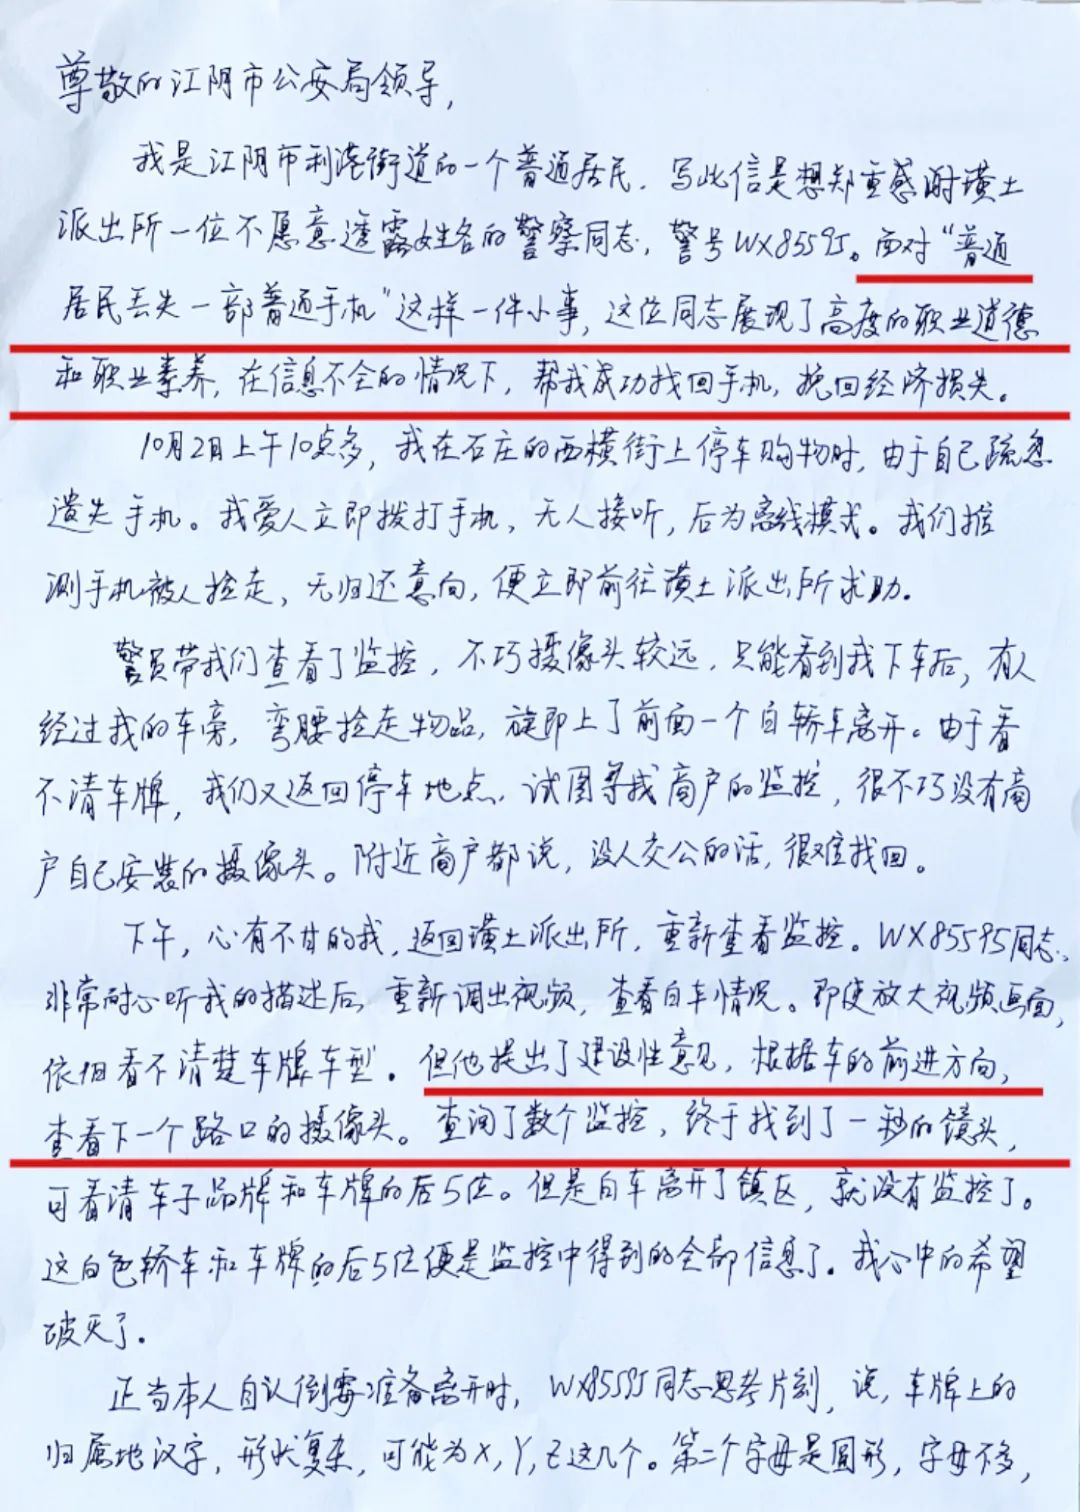 尊敬的江阴市公安局领导,
我是江阴市利港街道的一个普通居民，写此信是想郑重感谢璜土
派出所一位不愿意透露姓名的警察同志，警号WX85595。面对“普通
居民丢失一部普通手机”这样一件小事，这位同志展现了高度的职业道德
和职业素养，在信息不全的情况下，帮我成功找回手机，挽回经济损失。
10月2日上午10点多，我在石庄的西横街上停车购物时，由于自己疏忽
遗失手机。我爱人立即拨打手机，无人接听，后为离线模式。我们推
测手机被人捡走，无归还意向，便立即前往璜土派出所求助.
警员带我们查看了监控，不巧摄像头较远，只能看到我下车后，有人
经过我的车旁，弯腰捡走物品，旋即上了前面一个白轿车离开。由于看
不清车牌，我们又返回停车地点，试图寻找商户的监控，很不巧没有商
户自己安装的摄像头。附近商户都说，没人交公的话，很难找回。
下午，心有不甘的我，返回璜土派出所，重新查看监控。WX85595同志,
非常耐心听我的描述后，重新调出视频，查看白车情况。即使放大视频画面，
依旧看不清楚车牌车型。但他提出了建设性意见，根据车的前进方向，
查看下一个路口的摄像头。查阅了数个监控，终于找到了一秒的镜头，
可看清车子品牌和车牌的后5位。但是白车离开了镇区，就没有监控了。
这白色轿车和车牌的后5位便是监控中得到的全部信息了。我心中的希望
破灭了.
正当本人自认倒霉准备离开时，WX85595同志思考片刻，说，车牌上的
归属地汉字，形状复杂，可能为X,Y,Z这几个。第二个字母是圆形，字母不多，